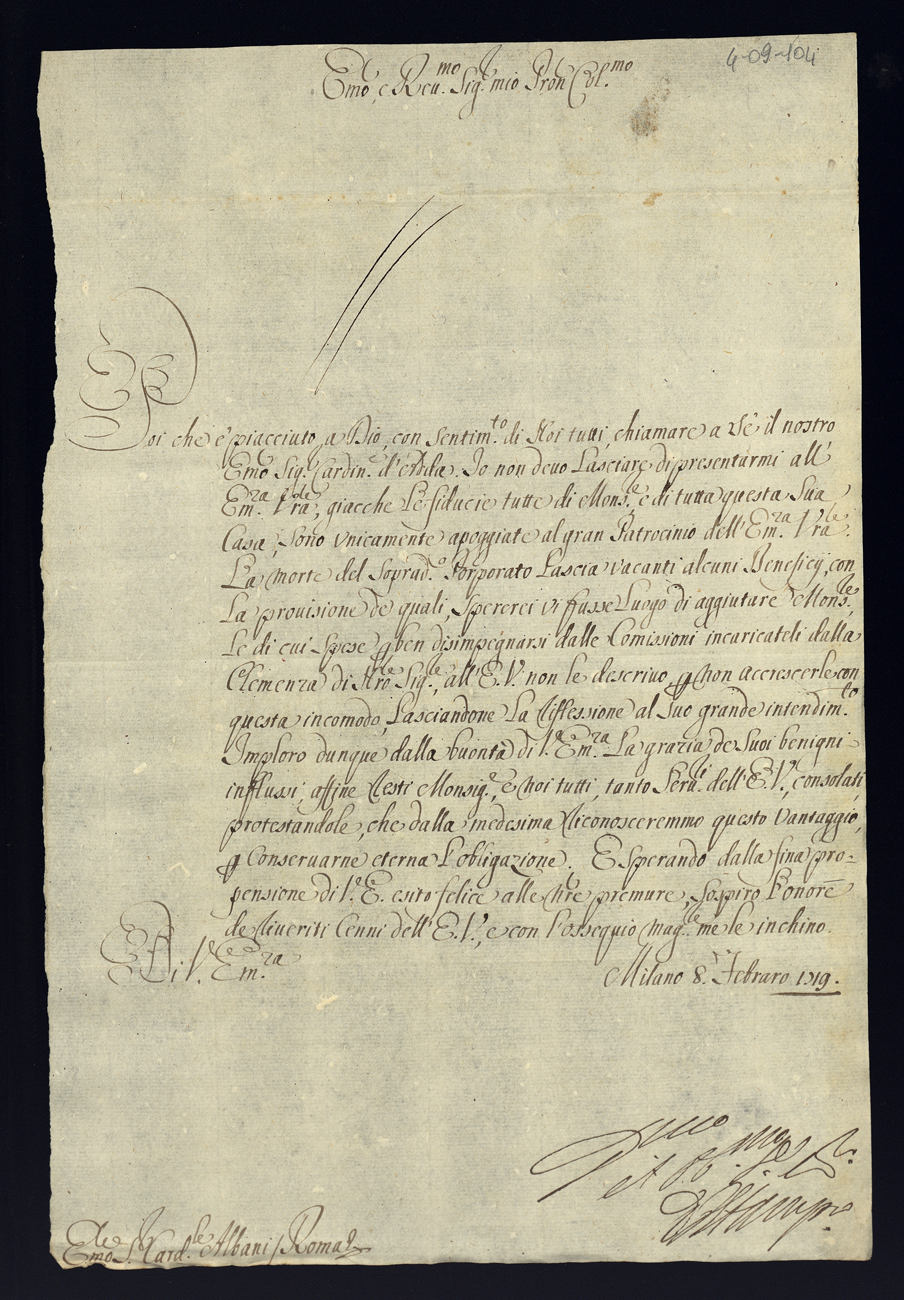 4-09-104
Emo, e Reu.mo Sig.r mio Pron Col.mo
Poi che è piacciuto, a Dio, con sentim.to di Noi tutti, chiamare a Sè il nostro
Emo Sig.r Cardin.e d'Adda. Io non devo lasciare di presentarmi all'
Em.ra Vra, giacche le fiducie tutte di Mons.re, e di tutta questa Sua
Casa, sono unicamente apoggiate al gran Patrocinio dell'Em.ra Vra.
La morte del Soprad.o Porporato lascia vacanti alcuni Beneficij, con
la provisione de quali, spererei vi fusse luogo di aggiutare Mons.re,
le di cui spese p ben disimpegnarsi dalle Comissioni incaricateli dalla
Clemenza di Nro Sig.re, all'E.V. non le descrivo, p non accrescerle con
questa incomodo, lasciandone la riflessione al suo grande intendim.to
Imploro dunque dalla buontà di V. Em.ra la grazia de suoi benigni
influssi, affine resti Monsig.r, e noi tutti, tanto Seru.ri dell'E.V., consolati,
protestandole, che dalla medesima riconosceremmo questo vantaggio,
p conservarne eterna l'obligazione. E sperando dalla fina pro=
pensione di V. E. esito felice alle nre premure, sospiro l'onore
de riveriti Cenni dell'E.V., e con l'ossequio mag.re me le inchino.
Di V. Em.ra
Milano 8. Febraro 1719.
Emo S. Card.le Albani / Roma